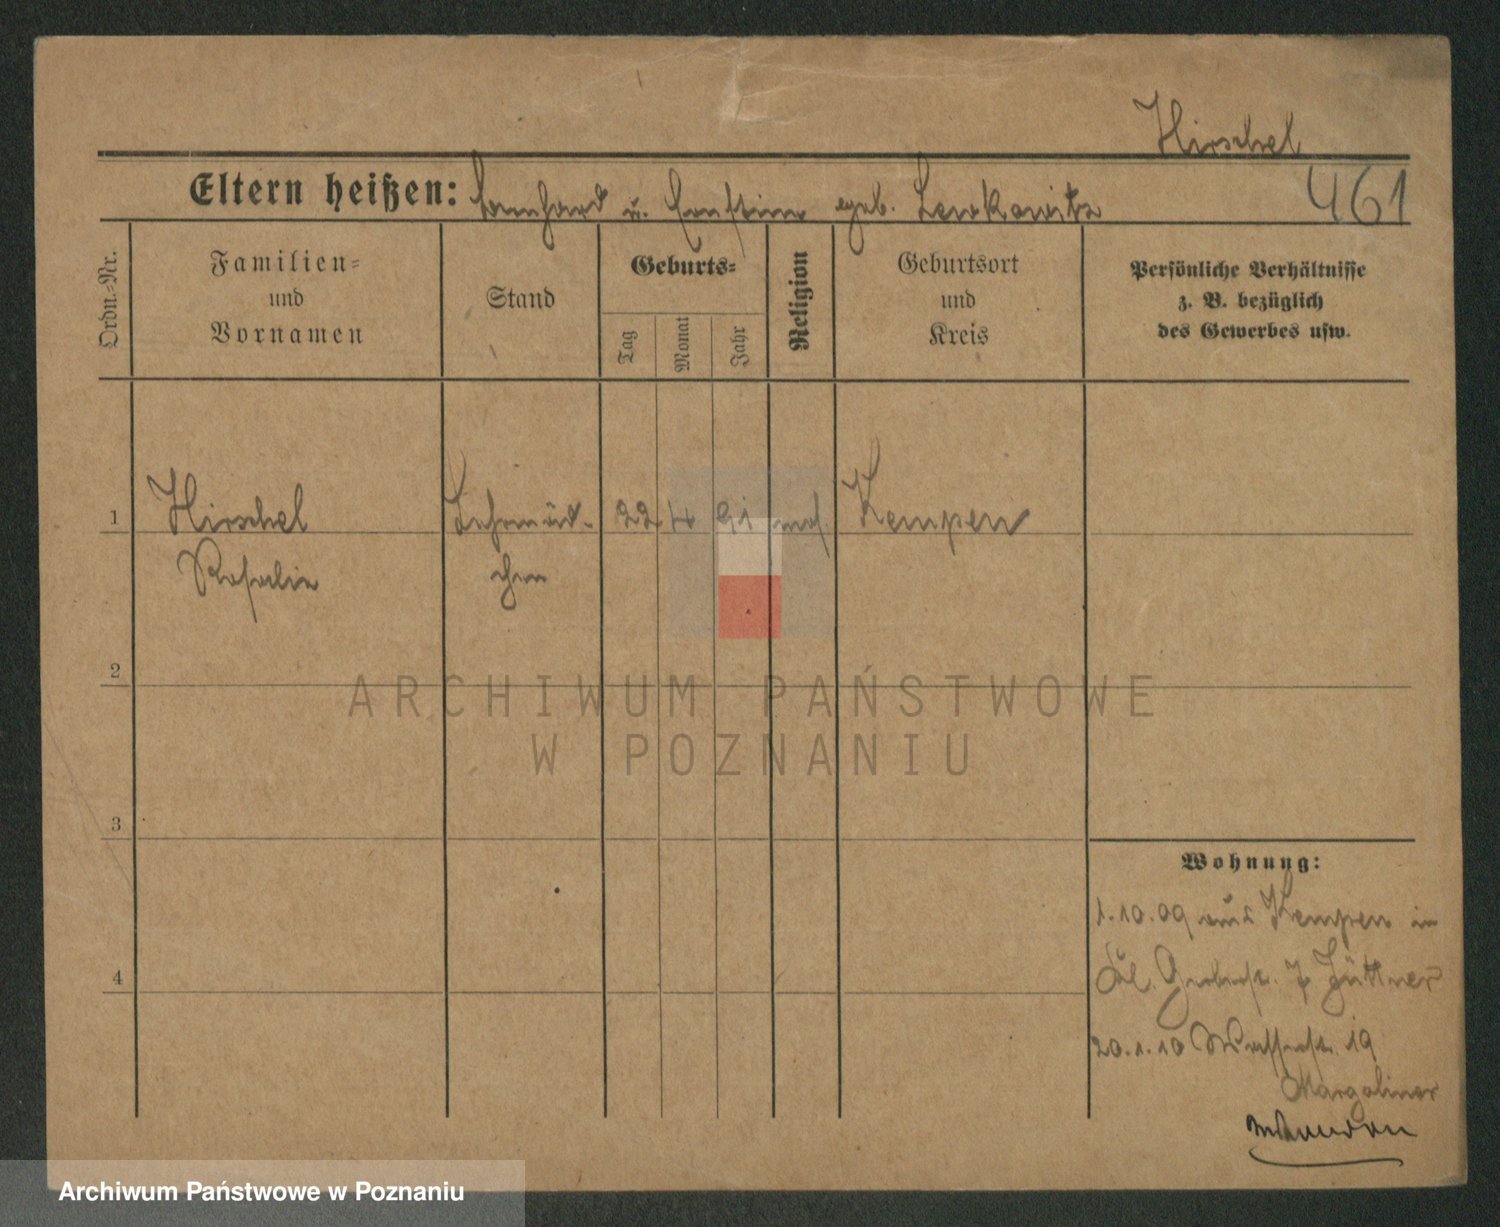 Hirschel
461
Eltern heißen: Bernhard u. Ernstine geb. Lewkowitz
Ordn.=Nr.
Familien=
und
Vornamen
Stand
Geburts=
Tag
Monat
Jahr
Religion
Geburtsort
und
Kreis
Persönliche Verhältnisse
z. B. bezüglich
des Gewerbes usw.
1
Hirschel Lehrmäd- 22 4 91 mos. Kempen
Rosalie chen
2
ARCHIWUM PAŃSTWOWE
W POZNANIU
3
Wohnung:
1.10.09 aus Kempen in
4
7 Jüttner
20.1.10 Wasserstr. 19
Margoliner
Archiwum Państwowe w Poznaniu